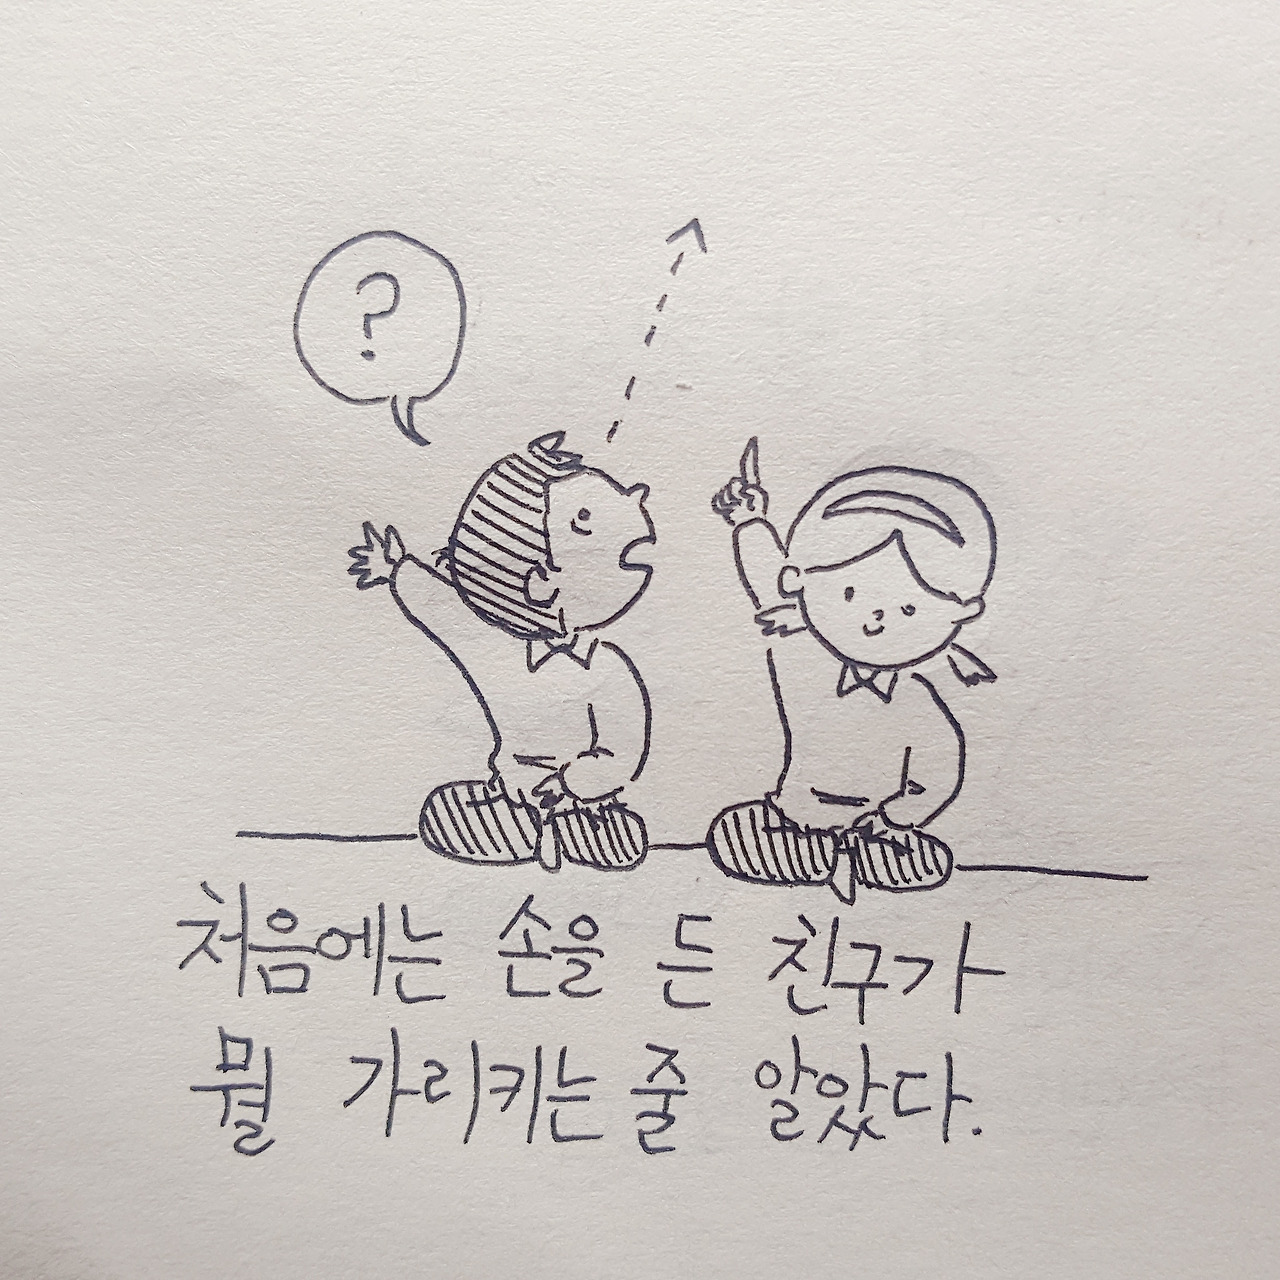 ?
처음에는 손을 든 친구가
뭘 가리키는 줄 알았다.